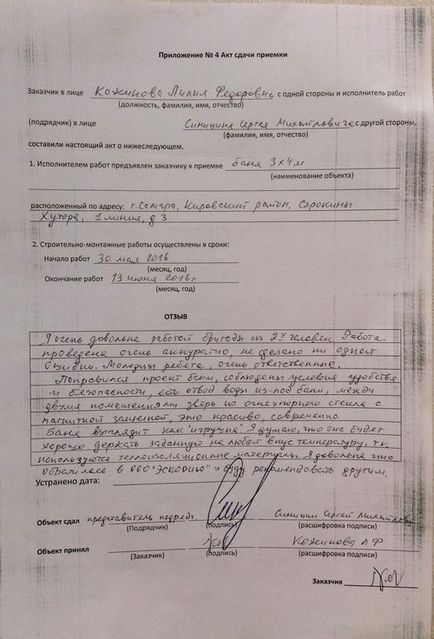 Приложение № 4 Акт сдачи приемки
Заказчик в лице Кожинова Лилия Федоровна с одной стороны и исполнитель работ
(должность, фамилия, имя, отчество)
(подрядчик) в лице Синицина Сергея Михайловича с другой стороны,
(фамилия, имя, отчество)
составили настоящий акт о нижеследующем.
1. Исполнителем работ предъявлен заказчику к приемке баня 3х4м
(наименование объекта)
расположенный по адресу: г. Самара, Кировский район, Сорокины
Хутора, 1 линия, д. 3
2. Строительно-монтажные работы осуществлены в сроки:
Начало работ 30 мая 2016
(месяц, год)
Окончание работ 13 июня 2016г
(месяц, год)
ОТЗЫВ
Я очень довольна работой бригады из 2х человек. Работа
проведена очень аккуратно, не сделано ни одной
ошибки. Молодцы ребята, очень ответственные.
Понравился проект бани, соблюдены условия удобства
и безопасности, есть отвод воды из-под бани, между
двумя помещениями дверь из огнеупорного стекла с
магнитной защелкой, это красиво, современно.
Баня выглядит как "игрушка". Я думаю, что она будет
хорошо держать заданную на любой вкус температуру, т.к.
используются теплоизоляционные материалы. Я довольна что
обратилась в ООО "Эскорию" и буду рекомендовать другим.
Устранено дата:
Объект сдал представитель подряд Синицин Сергей Михайлович
(Подрядчик) (подпись) (расшифровка подписи)
Объект принял Кожинова Л Ф
(Заказчик) (подпись) (расшифровка подписи)
Заказчик